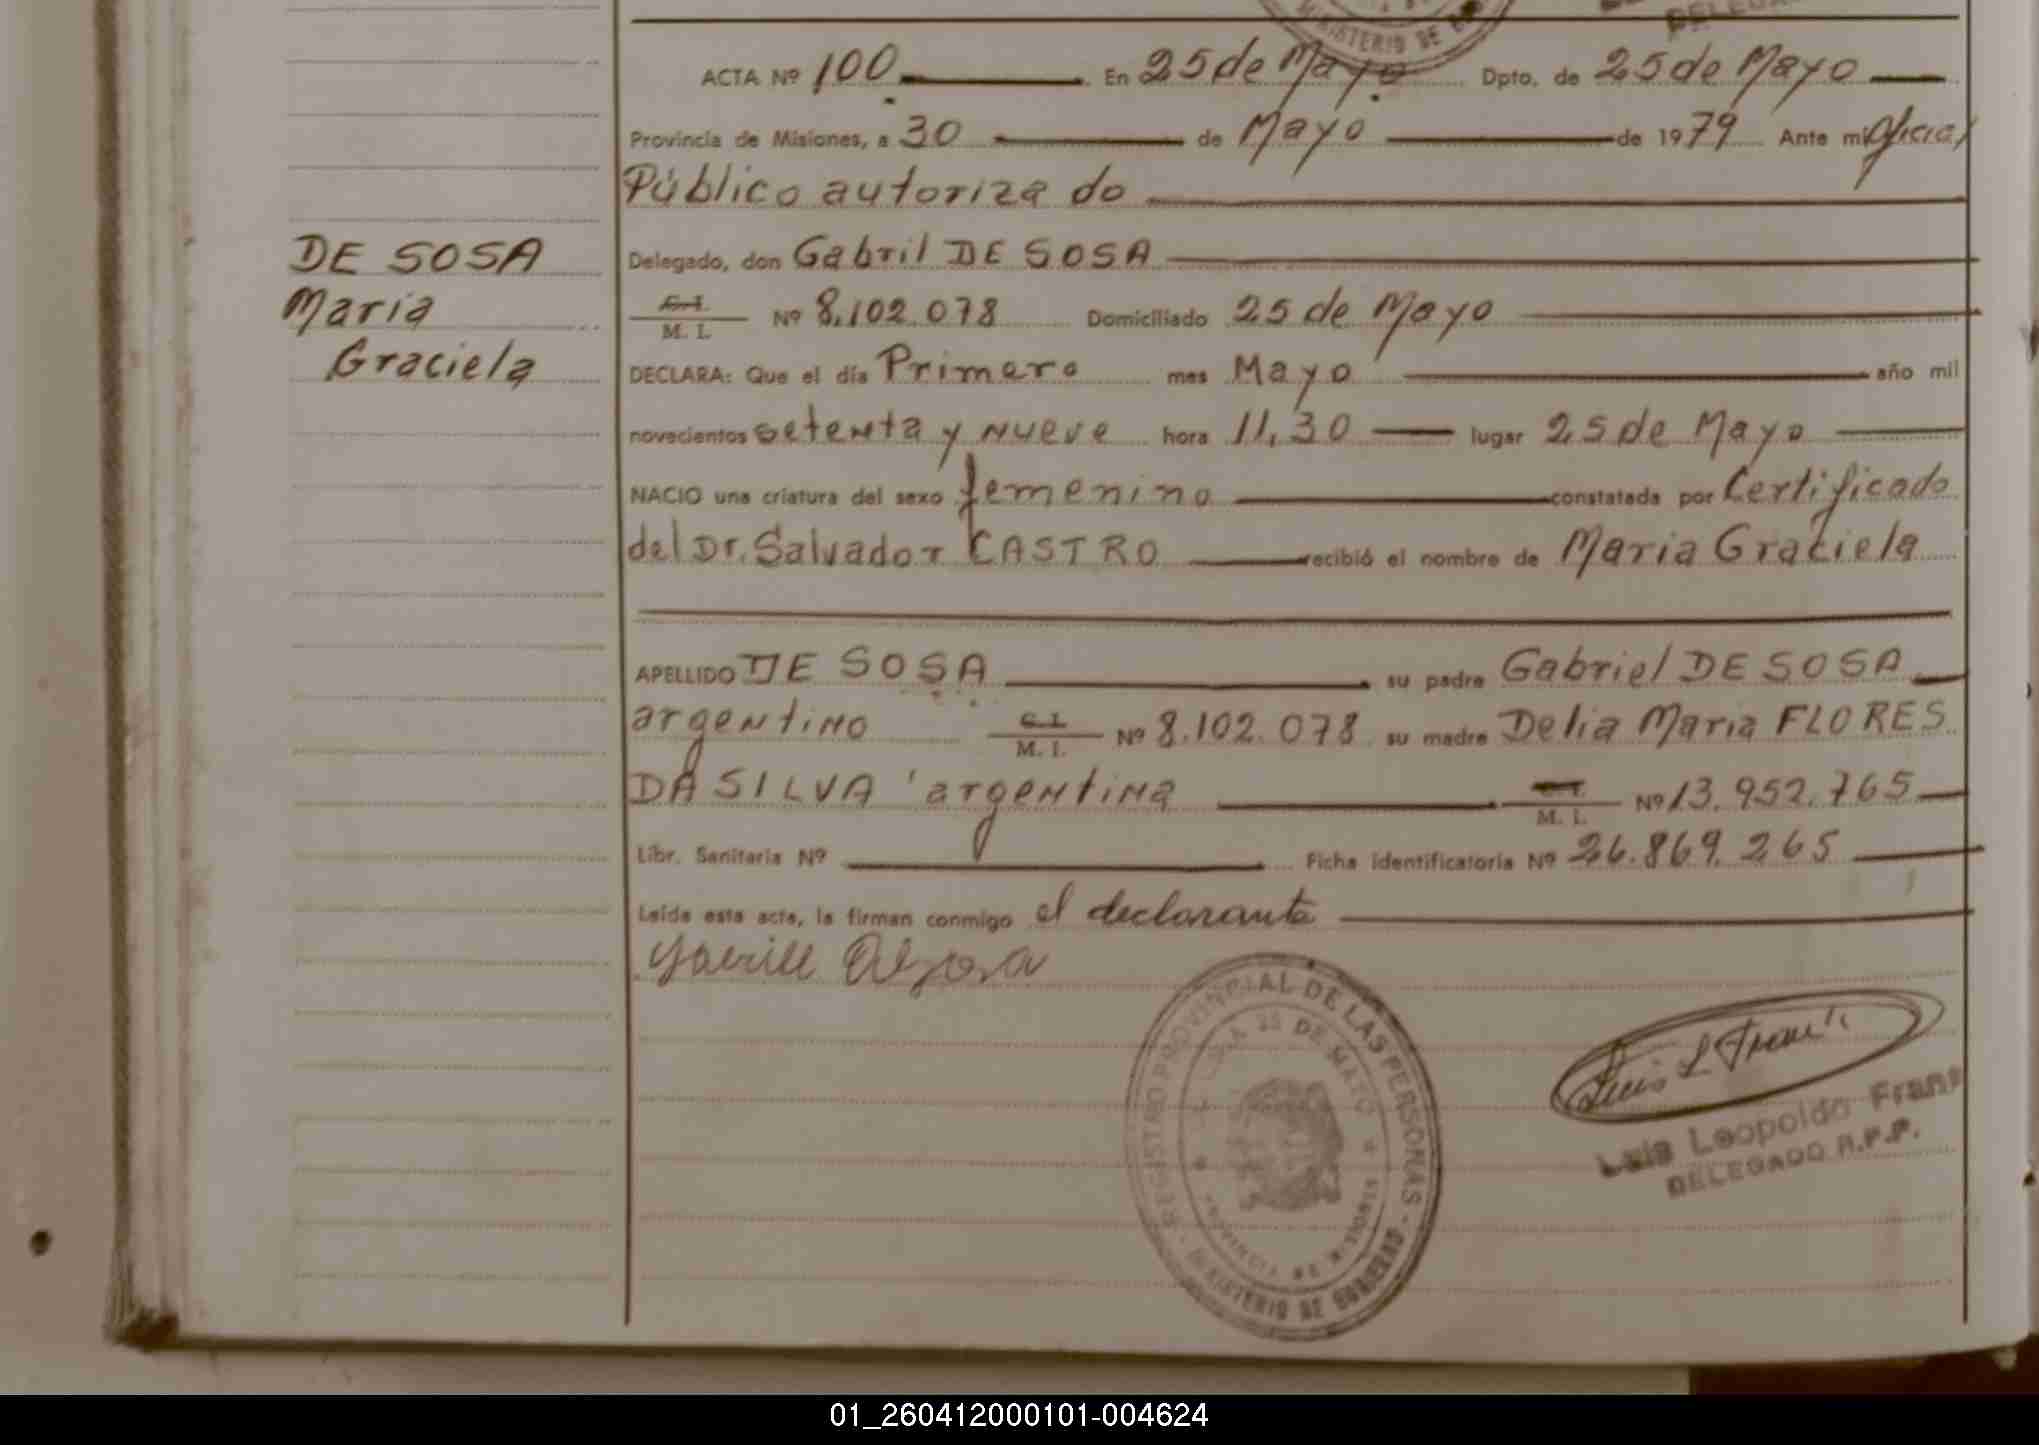 ACTA Nº 100 En 25 de Mayo Dpto. de 25 de Mayo
Provincia de Misiones, a 30 de Mayo de 1979 Ante mi Oficial
Público autorizado
DE SOSA
Maria
Graciela
Delegado, don Gabril DE SOSA
C. I.
M. I. Nº 8.102.078 Domiciliado 25 de Mayo
DECLARA: Que el día Primero mes Mayo año mil
novecientos setenta y nueve hora 11,30 lugar 25 de Mayo
NACIO una criatura del sexo femenino constatada por Certificado
del Dr. Salvador CASTRO recibió el nombre de Maria Graciela
APELLIDO DE SOSA su padre Gabriel DE SOSA
argentino C. I.
M. I. Nº 8.102.078 su madre Delia Maria FLORES
DA SILVA argentina M. I. Nº 13.952.765
Libr. Sanitaria Nº Ficha identificatoria Nº 26.869.265
Leída esta acta, la firman conmigo el declarante
REGISTRO PROVINCIAL DE LAS PERSONAS
25 DE MAYO
PROVINCIA DE MISIONES
MINISTERIO DE GOBIERNO
Luis Leopoldo
DELEGADO R.P.P.
01_260412000101-004624